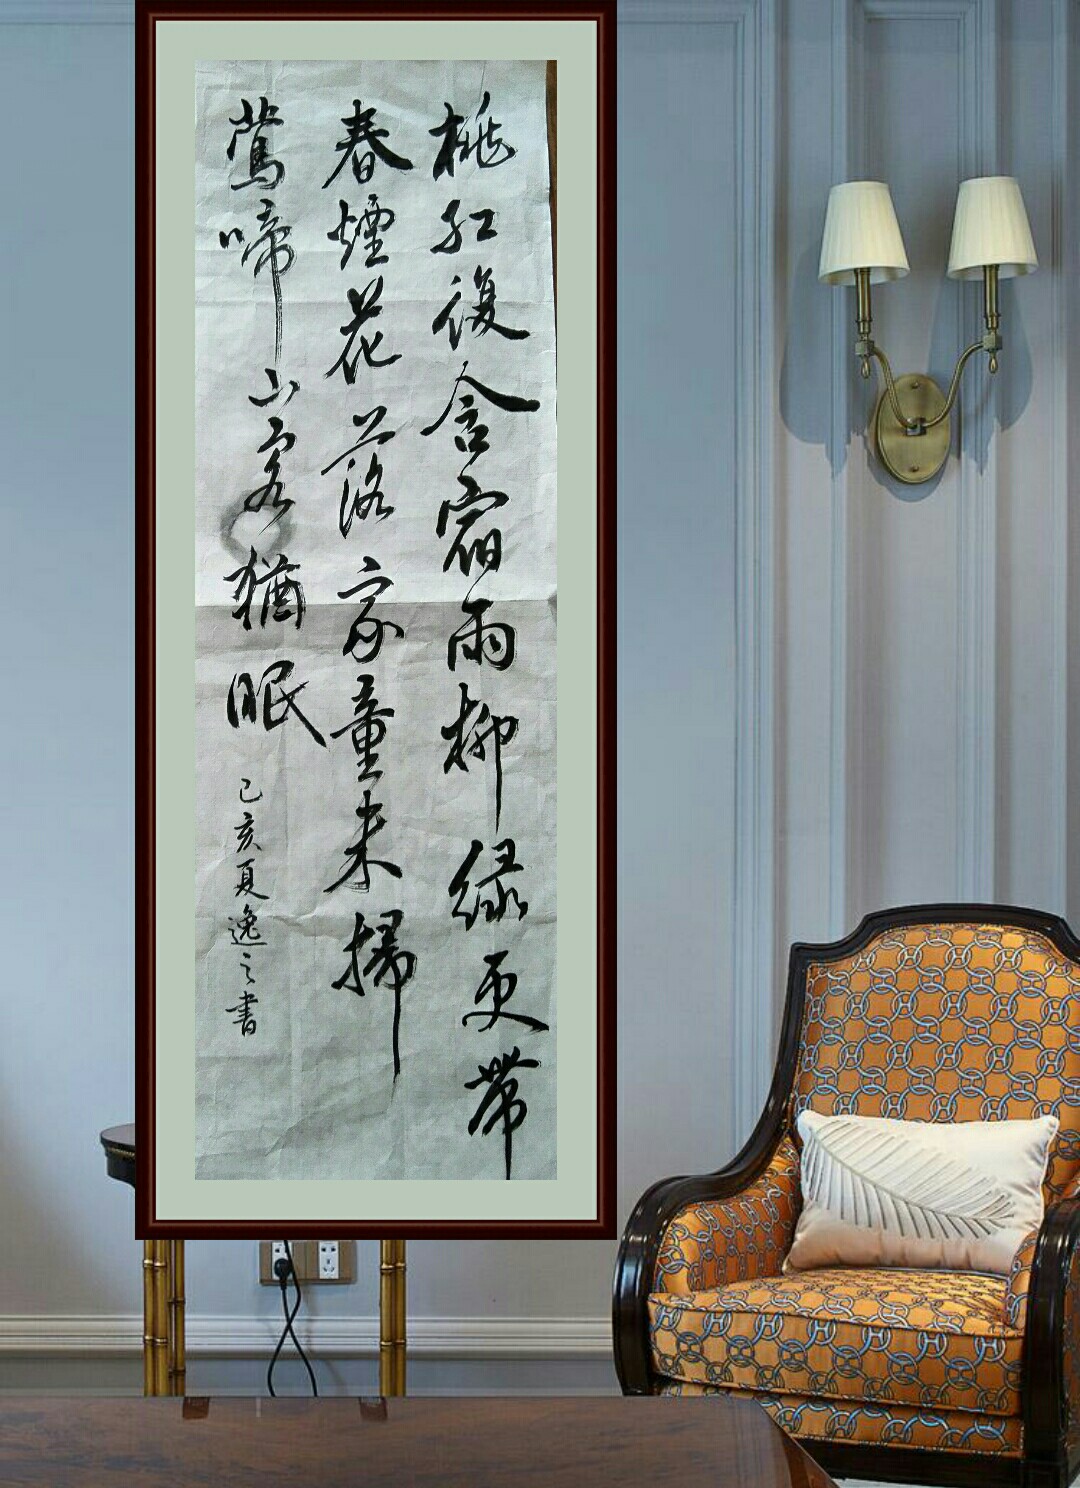 桃紅復含宿雨柳緑更帶
春煙花落家童未掃
鶯啼山客猶眠
己亥夏逸之書